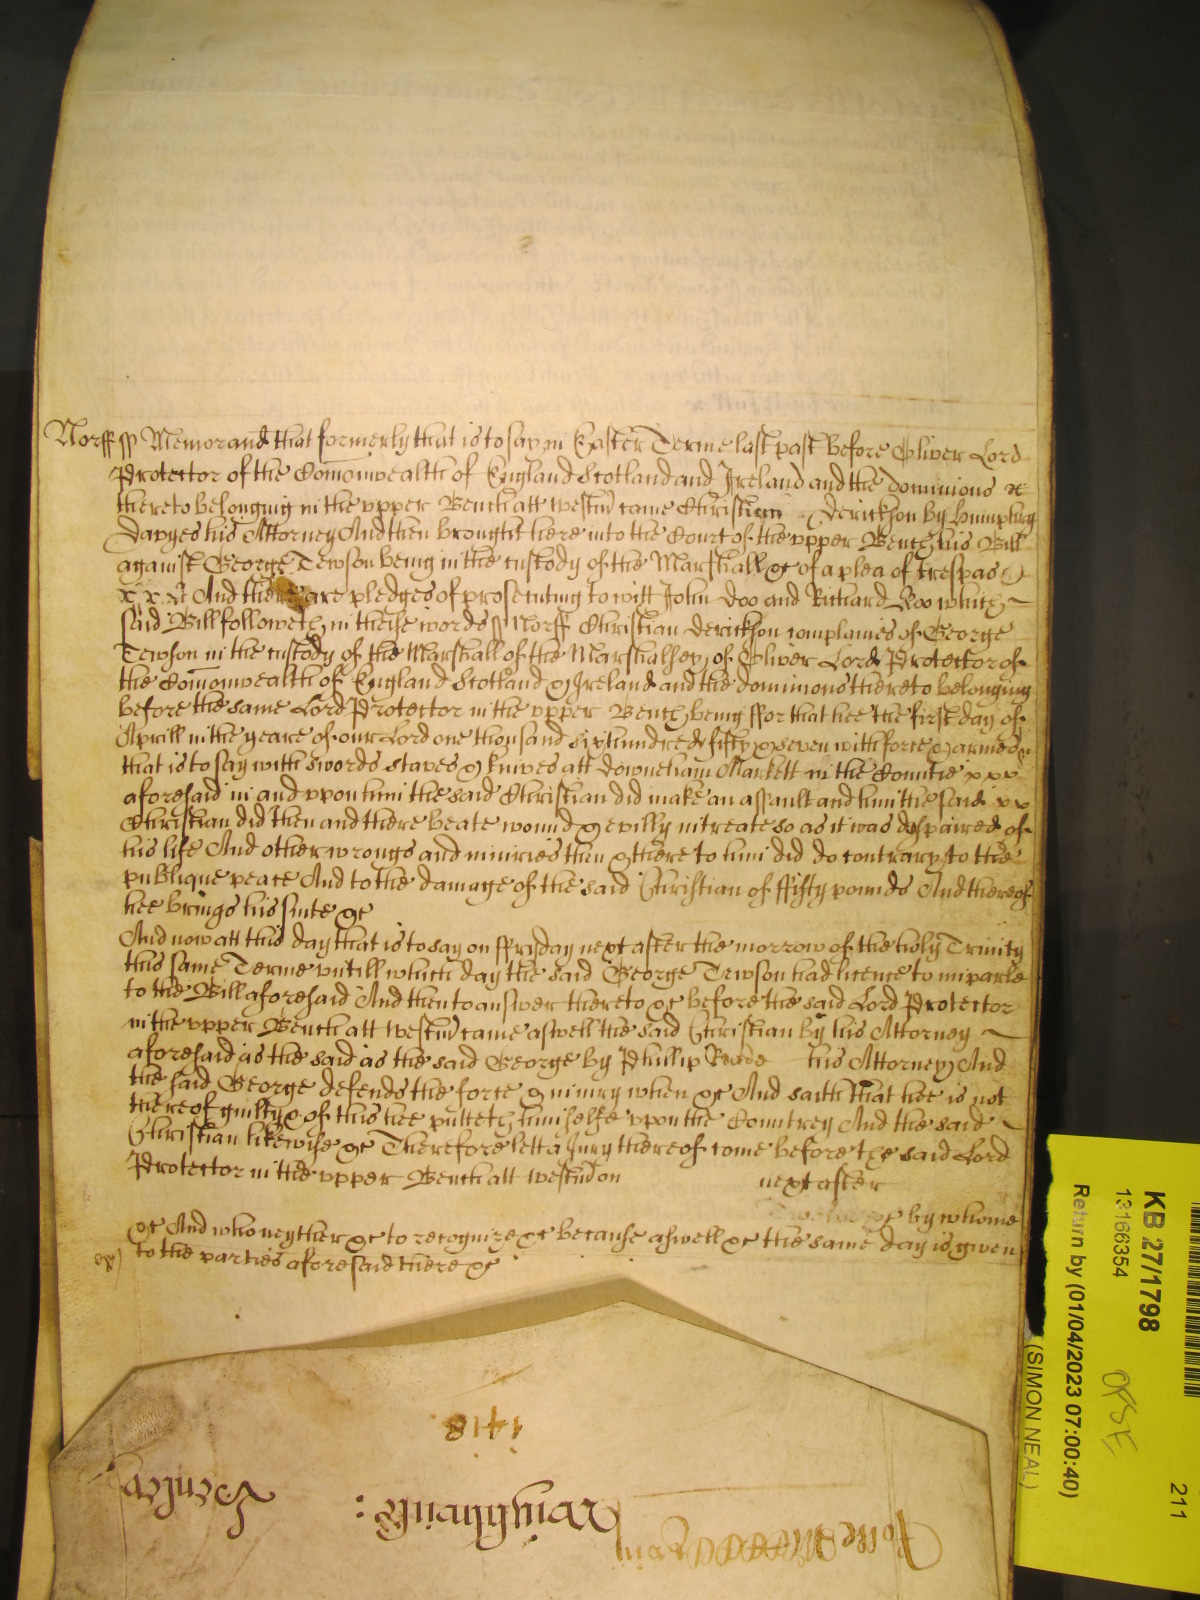 Norff ss Memorand that formerly that is to say in Easter Terme last past before Oliver Lord
Protector of the Comonwealth of England Scotland and Ireland and the dominions
thereto belonging in the upper Bench att Westm came Christian Derickson by Humphry
Davyes his Attorney And then brought here into the Court of the upper Bench his Bill
against George Tewson being in the custody of the Marshall &c of a plea of trespas
x x x And there are pledges of prosecuting to witt John Doo and Richard Roo which
said Bill followeth in theise words ss Norff Christian Derickson complaines of George
Tewson in the custody of the Marshall of the Marshalsey of Oliver Lord Protector of
the Comonwealth of England Scotland & Ireland and the dominions thereto belonging
before the same Lord Protector in the upper Bench being ffor that hee the first day of
Aprill in the yeare of our Lord one thousand six hundred fifty & seven with force & armes
that is to say with swords staves & knives att Downeham Markett in the Countie x x x
aforesaid in and upon him the said Christian did make an assault and him the said x x
Christian did then and there beate wound & evilly intreate so as it was despaired of
his life And other wrongs and iniuries then & there to him did do contrary to the
publique peace And to the damage of the said Christian of ffifty pounds And thereof
hee brings his suite &c
And now att this day that is to say on ffryday next after the morrow of the holy Trinity
this same Terme untill which day the said George Tewson had licence to imparle
to the Bill aforesaid And then to answer thereto &c before the said Lord Protector
in the upper Bench att Westm came aswell the said Christian by his Attorney
aforesaid as the said as the said George by Phillip Reade his Attorney And
the said George defends the force & iniury when &c And saith that hee is not
thereof guilty & of this hee putteth himselfe upon the Countrey And the said
Christian likewise &c Therefore lett a Jury thereof come before the said Lord
Protector in the upper Bench att Westm on next after
Twelve &c by whome
&c And who neyther &c to recognize &c because aswell &c the same day is given
to the parties aforesaid there &c
1418
Wightwicke : Henley
KB 27/1798
13166354
Return by (01/04/2023 07:00:40)
(SIMON NEAL)
211